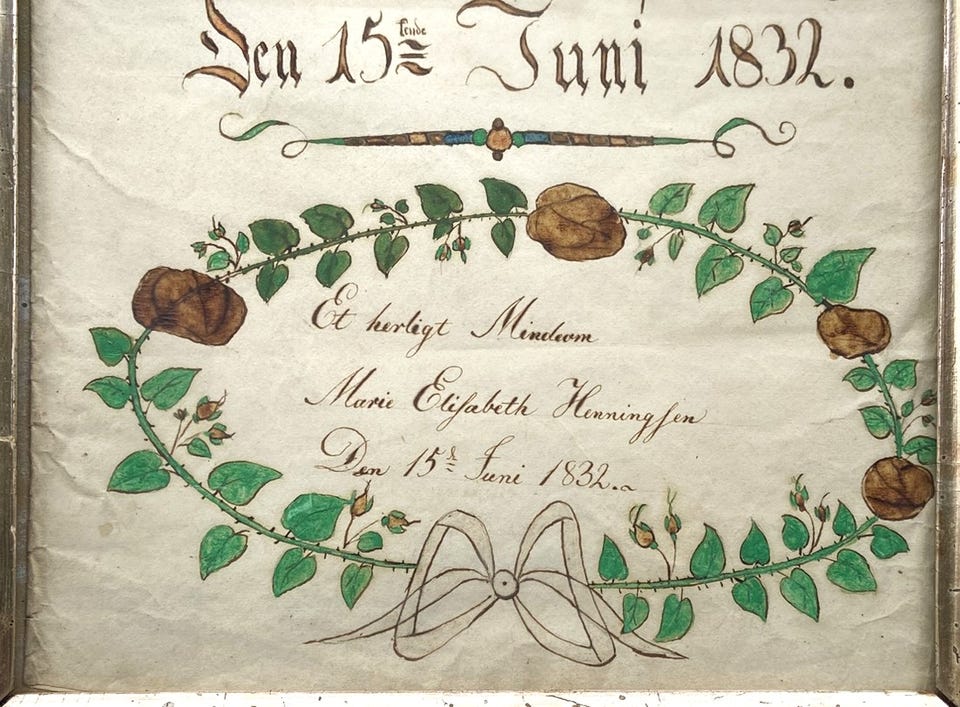 Den 15tende Juni 1832.
Et herligt Mindeom
Marie Elisabeth Henningsen
Den 15d Juni 1832.